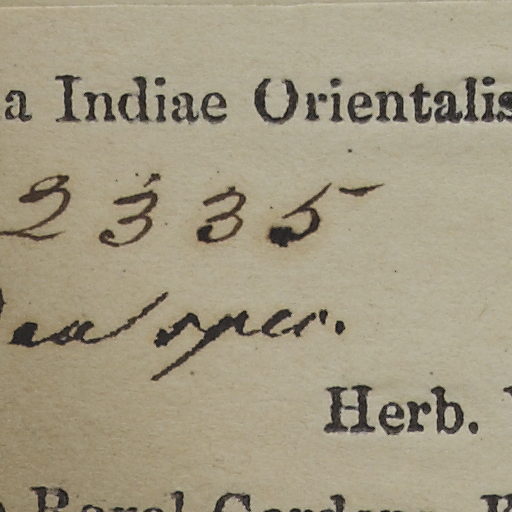 a Indiae Orientalis
2335
spec.
Herb.
Royal Gardens